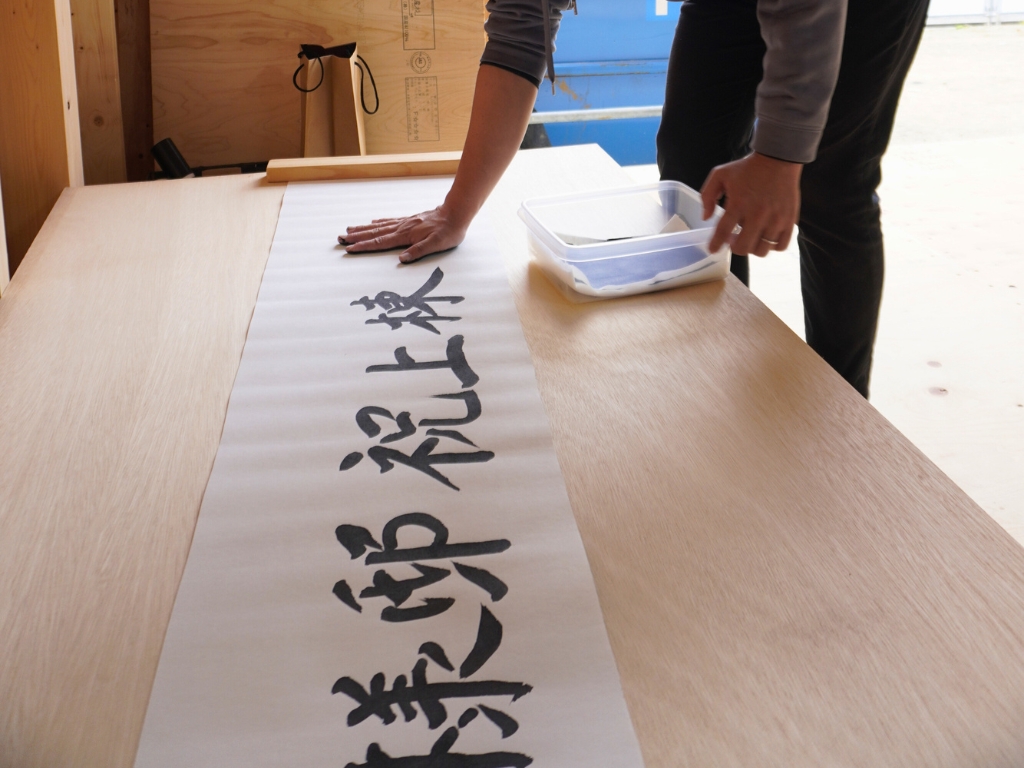 様邸 祝上棟